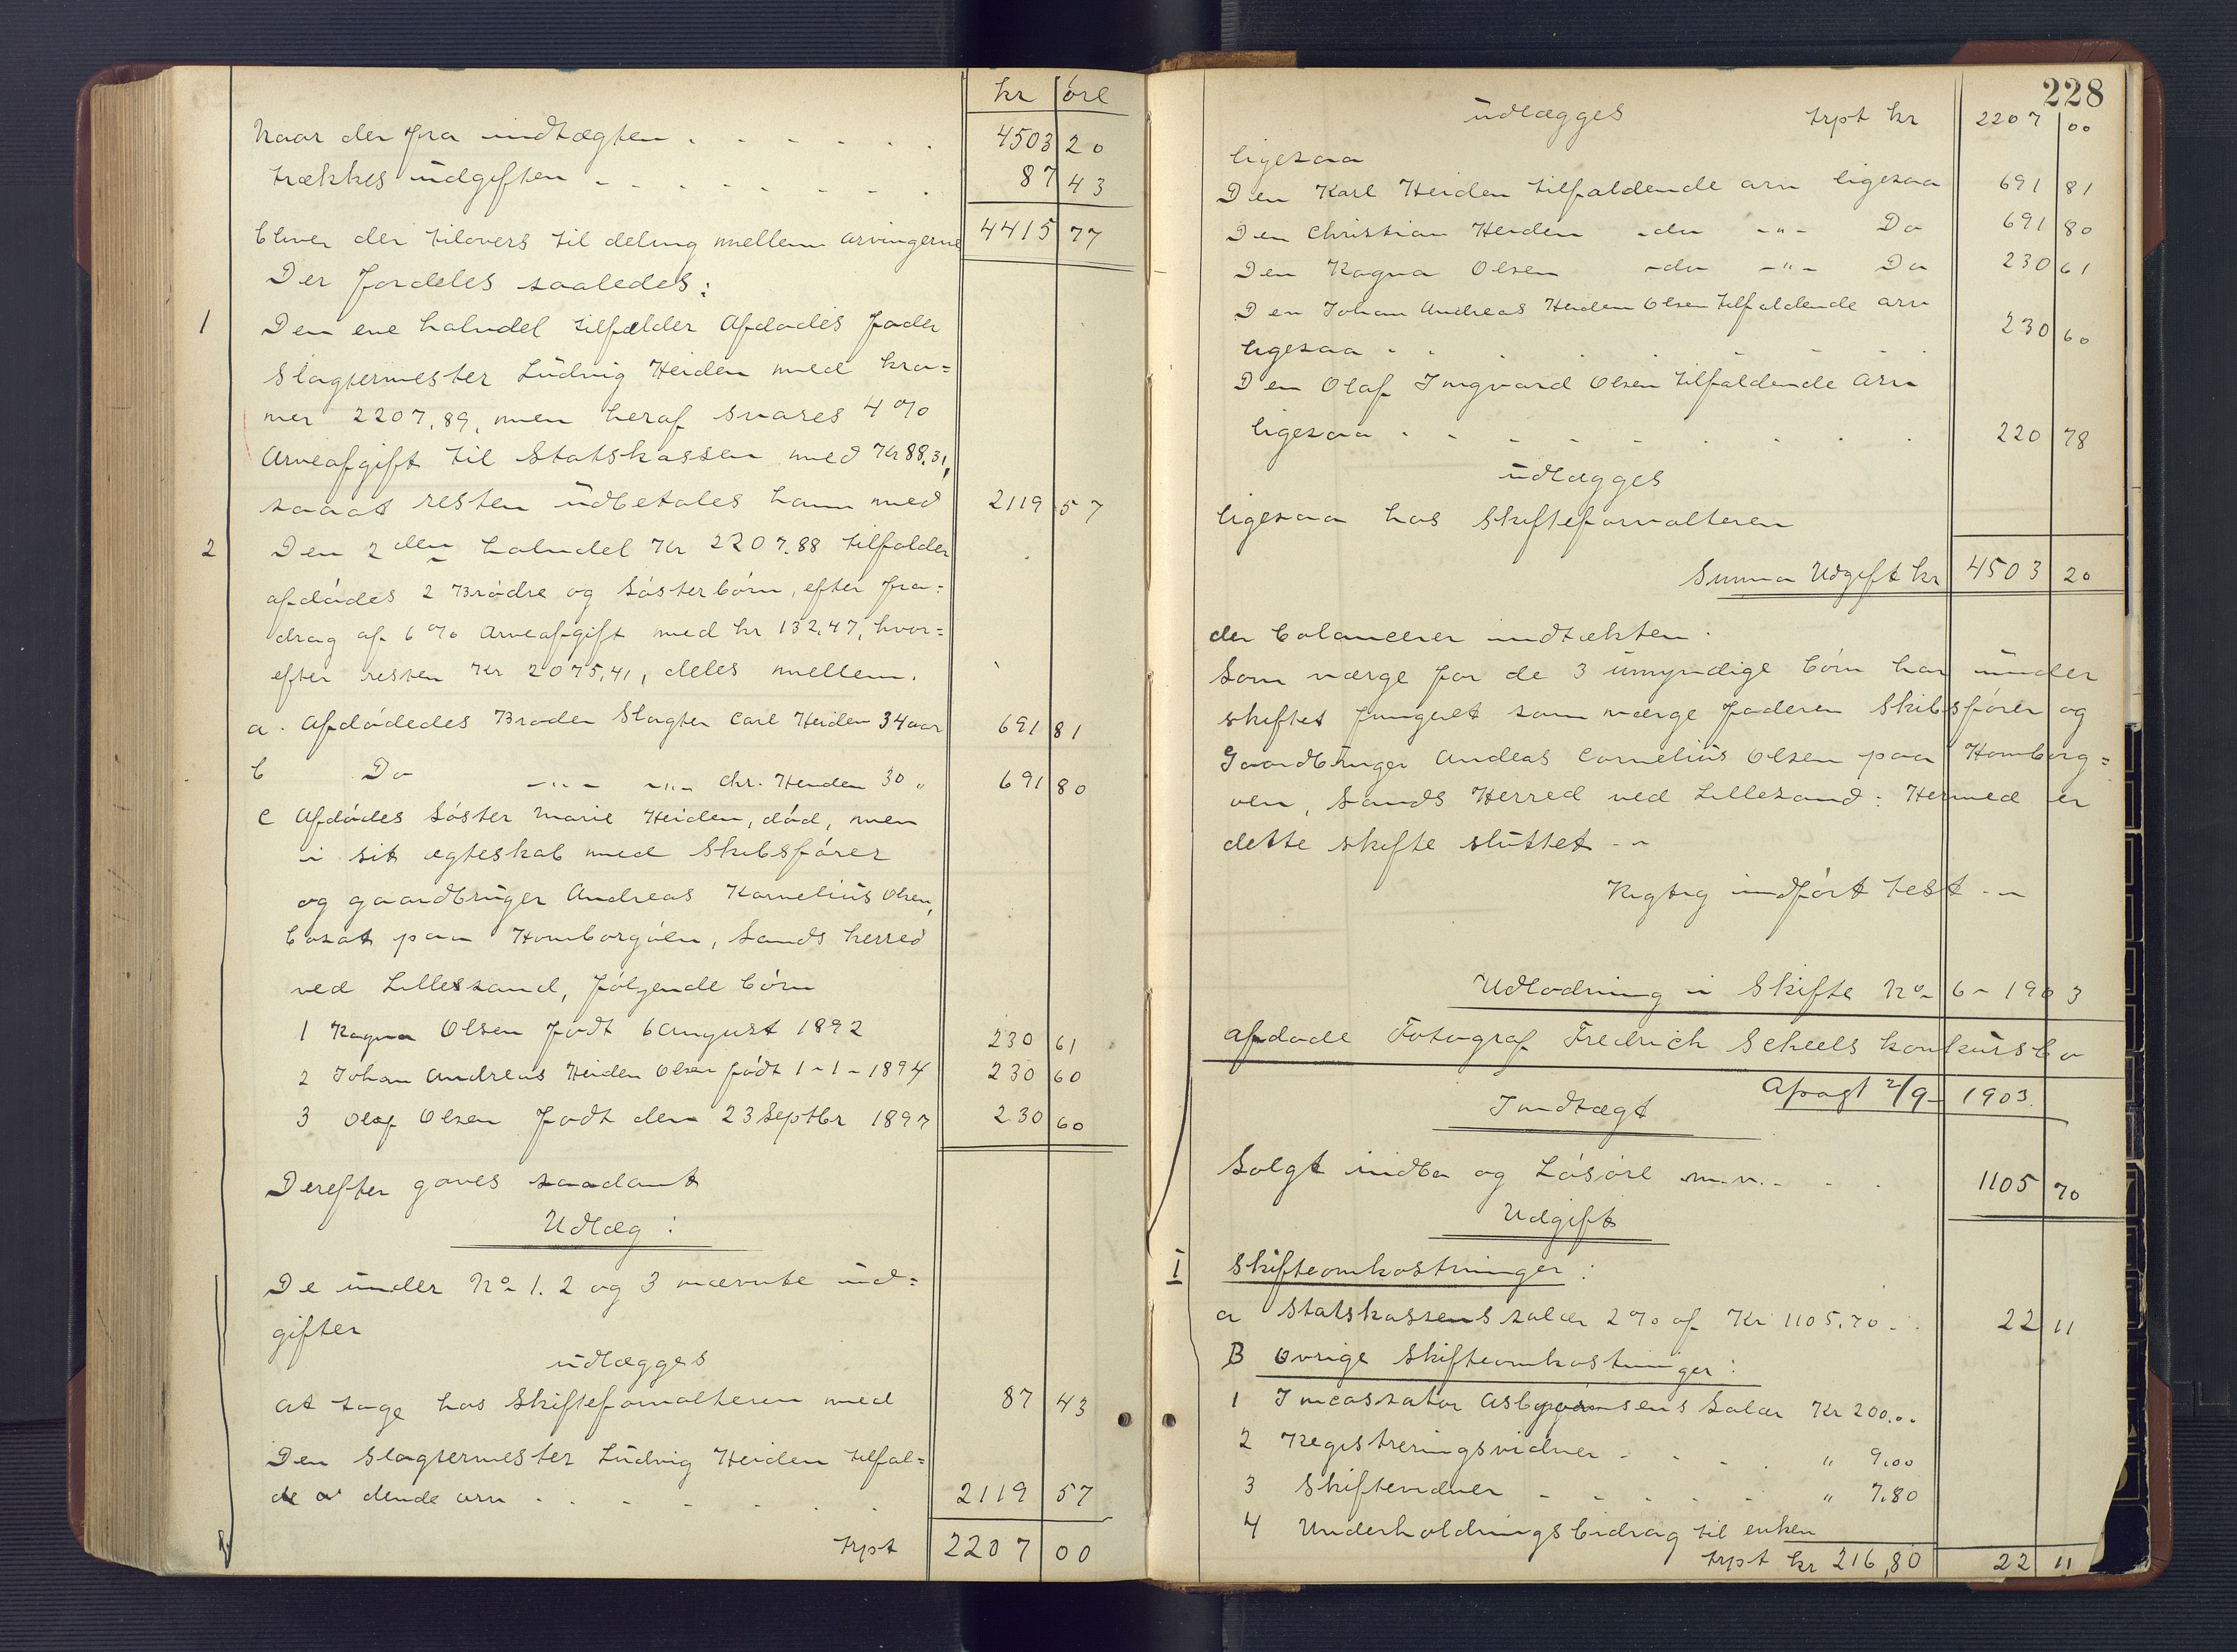 kr øre
Naar der fra indtægten . . . . . . 4503 20
trækkes udgiften - - . . . . - - . 87 43
bliver der tilovers til deling mellem arvingerne 4415 77
Der fordeles saaledes:
1 Den ene halvdel tilfælder Afdødes fader
Slagtermester Ludvig Heiden med kro=
ner 2207,89, men heraf svares 4%
Arveafgift til Statskassen med Kr 88.31,
saaat resten udbetales ham med 2119 57
2 Den 2den halvdel Kr 2207.88 tilfalder
afdødes 2 Brødre og Søsterbørn, efter fra=
drag af 6% arveafgift med kr 132,47, hvor=
efter resten Kr 2075,41, deles mellem.
a. Afdødedes Broder Slagter Carl Heiden 34 aar 691 81
b Do -"- -"- Chr. Heiden 30 " 691 80
c Afdødes Søster Marie Heiden, død, men
i sit ægteskab med Skibsfører
og gaardbruger Andreas Kornelius Olsen,
bosat paa Homborgøen, Sands herred
ved Lillesand, følgende børn
1 Ragna Olsen født 6 August 1892 230 61
2 Johan Andreas Heiden Olsen født 1-1-1894 230 60
3 Olaf Olsen født den 23 Septbr 1897 230 60
Derefter gaves saadant
Udlæg:
De under No 1. 2 og 3 nævnte ud=
gifter
udlægges
at tage hos Skifteforvalteren med 87 43
Den Slagtermester Ludvig Heiden tilfal=
dende arv . . - - - . . . 2119 57
trpt 2207 00
228
udlægges trpt kr 2207 00
ligesaa
Den Karl Heiden tilfaldende arv ligesaa 691 81
Den Christian Heiden -do -"- Do 691 80
Den Ragna Olsen -do -"- Do 230 61
Den Johan Andreas Heiden Olsen tilfaldende arv
ligesaa . . . . . - - - . 230 60
Den Olaf Ingvard Olsen tilfaldende arv
ligesaa . - - - - . . . . 220 78
udlægges
ligesaa hos Skifteforvalteren
Summa Udgift kr 4503 20
der balancerer indtækten.
Som værge for de 3 umyndige børn har under
skiftet fungeret som værge faderen Skibsfører og
Gaardbruger Andeas Cornelius Olsen paa Homborg=
øen, Sands Herred ved Lillesand: Hermed er
dette skifte sluttet - -
Rigtig indført test - -
Udlodning i Skifte No 6 - 1903
afdøde Fotograf Fredrich Scheels konkursbo
Afsagt 2/9 - 1903.
Indtægt
Solgt indbo og Løsøre m.v. . - . 1105 70
Udgift
I Skifteomkostninger:
a Statskassens salær 2% af Kr 1105.70 - . 22 11
B Øvrige Skifteomkostninger:
1 Incassator Asbjørnsens Salær Kr 200..
2 Registreringsvidner - . . . " 9,00
3 Skiftevidner - - - - - " 7.80
4 Underholdningsbidrag til enken
trpt kr 216,80 22 11